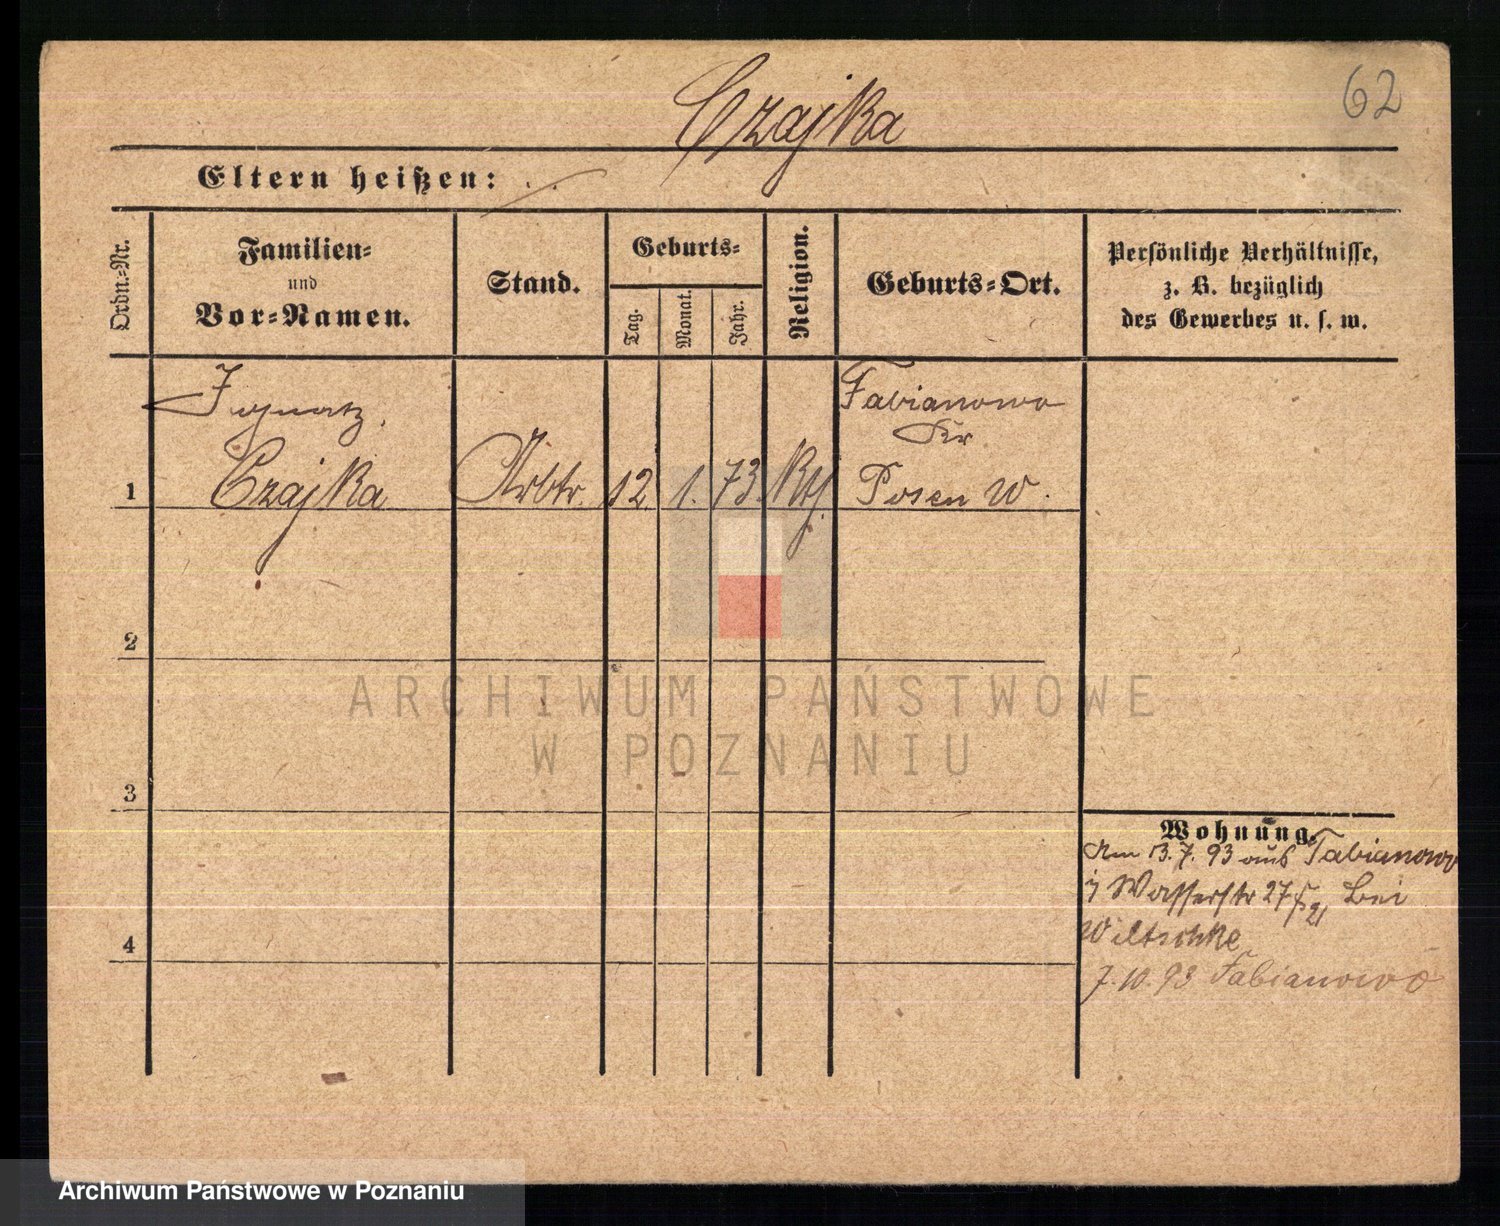 62
Czajka
Eltern heißen:
Ordn.-Nr.
Familien-
und
Vor-Namen.
Stand.
Geburts-
Tag.
Monat.
Jahr.
Religion.
Geburts-Ort.
Persönliche Verhältnisse,
z. B. bezüglich
des Gewerbes u. s. w.
Ignatz.
Fabianowo
Kr
1 Czajka Arbtr. 12. 1. 73. Kth. Posen W.
2
ARCHIWUM PAŃSTWOWE
W POZNANIU
3
Wohnung.
Am 13.7.93 aus Fabianowo
Wasserstr 27 bei
Wiltschke
7.10.93 Fabianowo
4
Archiwum Państwowe w Poznaniu